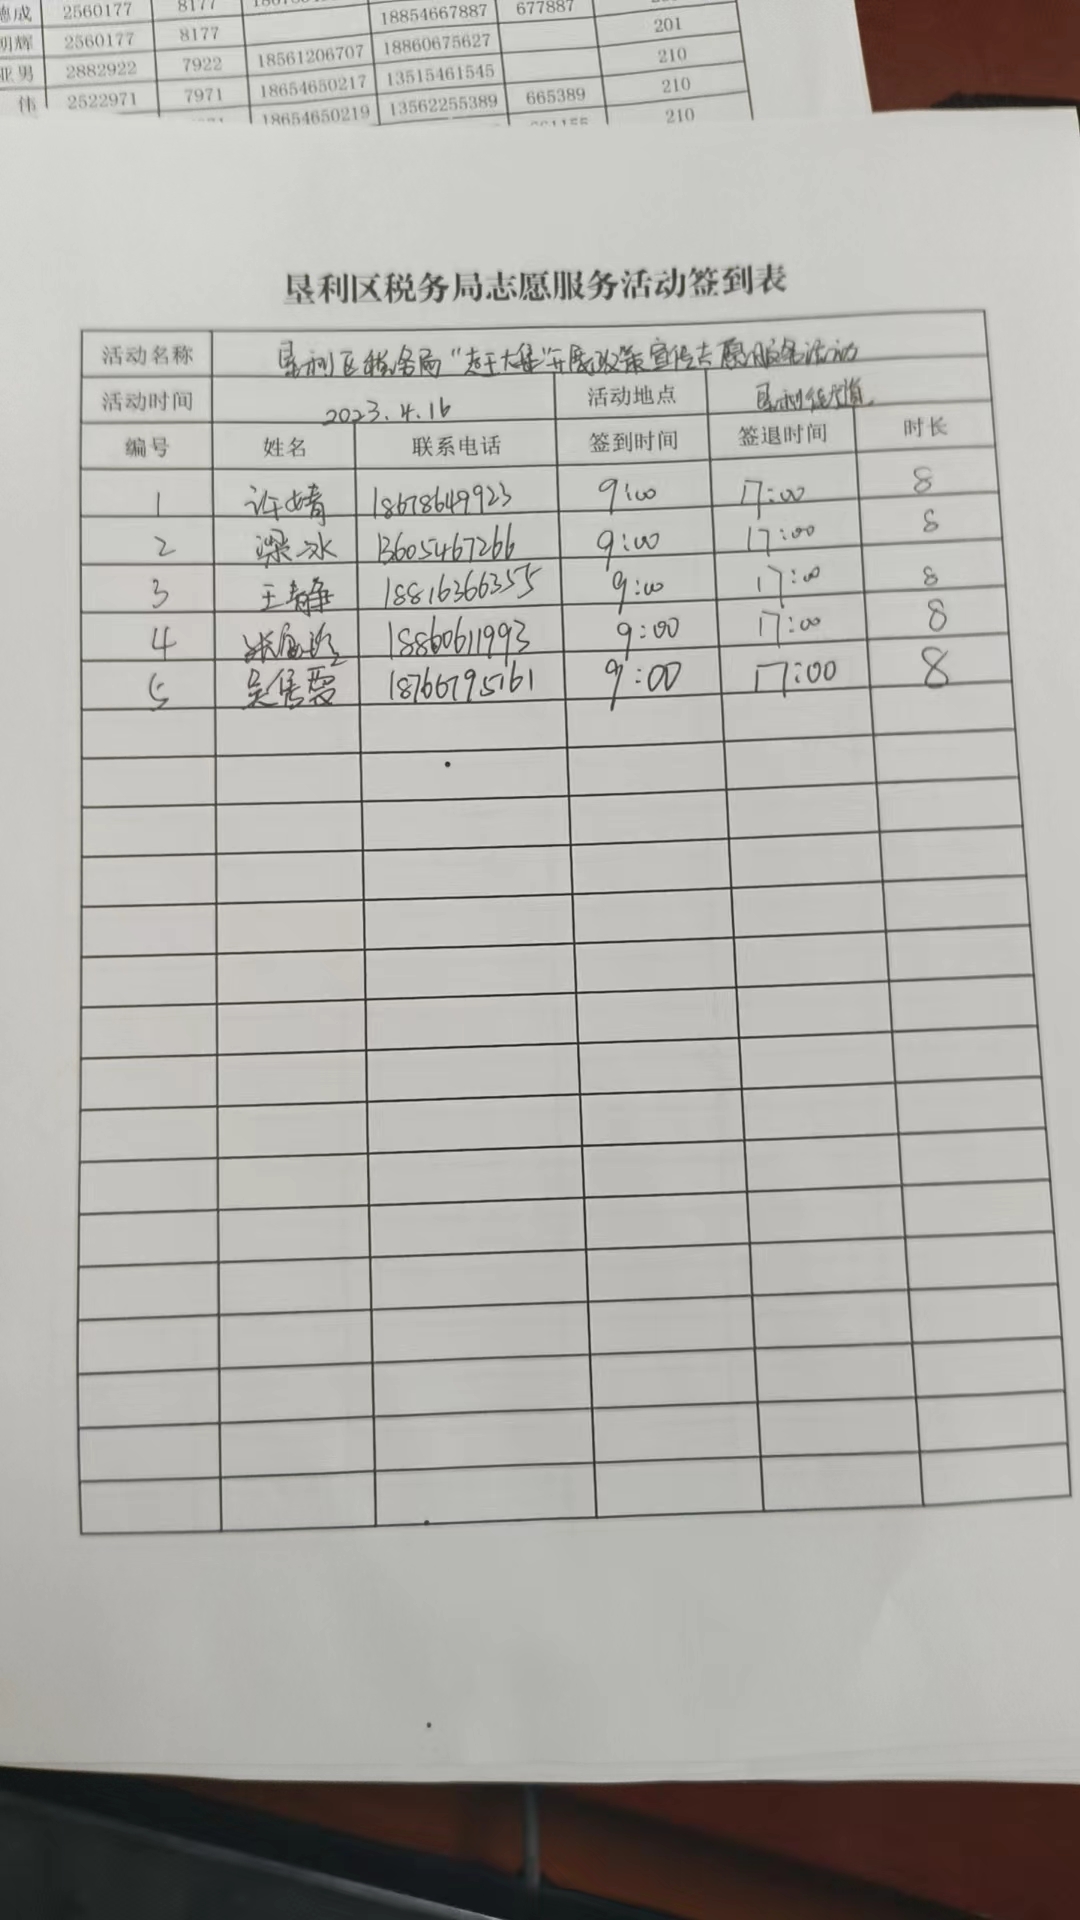 德成 2560177 8177
明辉 2560177 8177 18854667887 677887
亚男 2882922 7922 18561206707 18860675627 201
伟 2522971 7971 18654650217 13515461545 210
18654650219 13562255389 665389 210
210
垦利区税务局志愿服务活动签到表
活动名称 垦利区税务局“赶大集”开展政策宣传志愿服务活动
活动时间 2023.4.16 活动地点 垦利街道
编号 姓名 联系电话 签到时间 签退时间 时长
1 许婧 18678649923 9:00 17:00 8
2 梁冰 13605467266 9:00 17:00 8
3 王静 18816366355 9:00 17:00 8
4 18860611993 9:00 17:00 8
5 18766795161 9:00 17:00 8